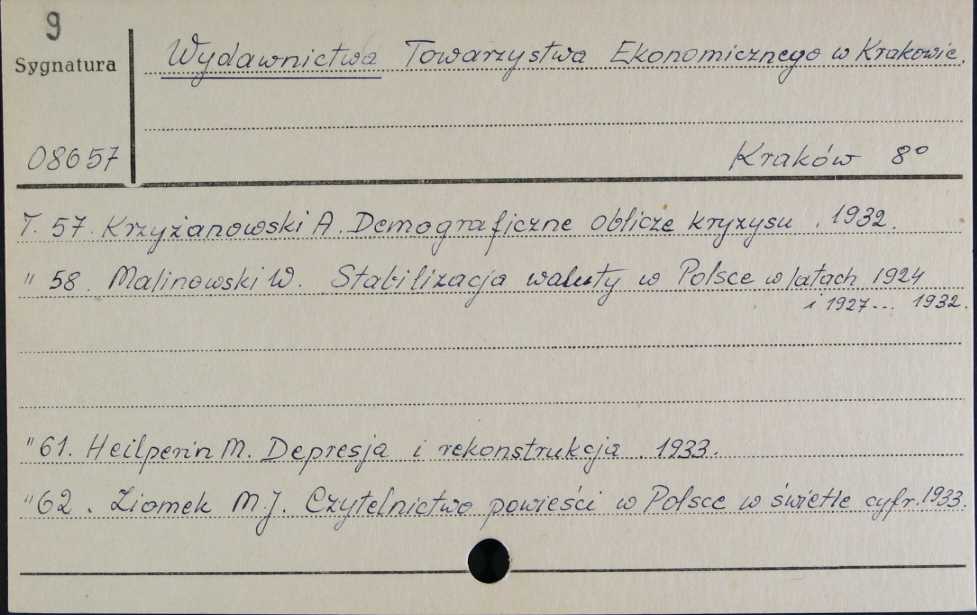 9
Sygnatura
Wydawnictwa Towarzystwa Ekonomicznego w Krakowie.
08657
Kraków 8°
T. 57. Krzyżanowski A. Demograficzne oblicze kryzysu. 1932.
" 58. Malinowski W. Stabilizacja waluty w Polsce w latach 1924
i 1927... 1932.
" 61. Heilperin M. Depresja i rekonstrukcja. 1933.
" 62. Ziomek M.J. Czytelnictwo powieści w Polsce w świetle cyfr. 1933.